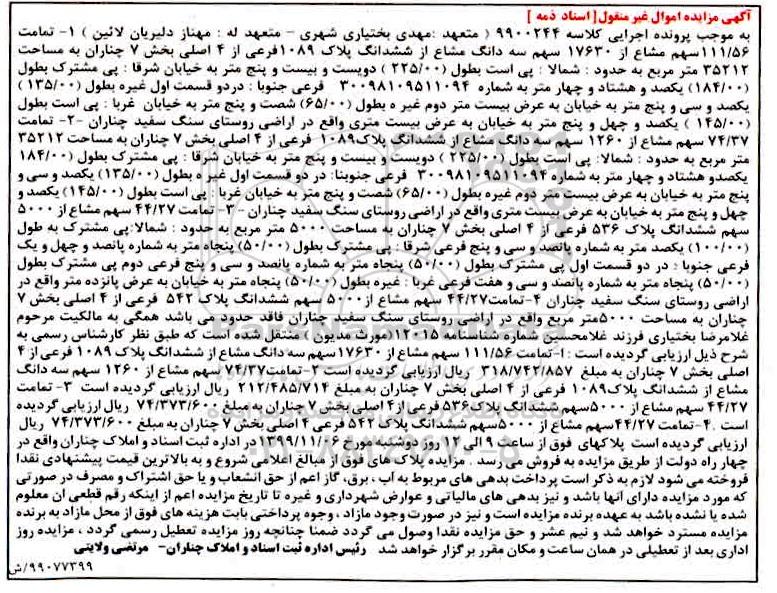 آگهی مزایده اموال غیر منقول [ اسناد ذمه ]
به موجب پرونده اجرایی کلاسه ۹۹۰۰۲۴۴ ( متعهد :مهدی بختیاری شهری – متعهد له : مهناز دلیریان لائین ) ۱- تمامت
۱۱۱/۵۶سهم مشاع از ۱۷۶۳۰ سهم سه دانگ مشاع از ششدانگ پلاک ۱۰۸۹فرعی از ۴ اصلی بخش ۷ چناران به مساحت
۳۵۲۱۲ متر مربع به حدود : شمالا : پی است بطول (۲۲۵/۰۰) دویست و بیست و پنج متر به خیابان شرقا : پی مشترک بطول
(۱۸۴/۰۰) یکصد و هشتاد و چهار متر به شماره ۳۰۰۹۸۱۰۹۵۱۱۰۹۴ فرعی جنوبا : دردو قسمت اول غیره بطول (۱۳۵/۰۰)
یکصد و سی و پنج متر به خیابان به عرض بیست متر دوم غیره بطول (۶۵/۰۰) شصت و پنج متر به خیابان غربا : پی است بطول
(۱۴۵/۰۰ ) یکصد و چهل و پنج متر به خیابان به عرض بیست متری واقع در اراضی روستای سنگ سفید چناران -۲- تمامت
۷۴/۳۷ سهم مشاع از ۱۲۶۰ سهم سه دانگ مشاع از ششدانگ پلاک۱۰۸۹ فرعی از ۴ اصلی بخش ۷ چناران به مساحت ۳۵۲۱۲
متر مربع به حدود : شمالا: پی است بطول (۲۲۵/۰۰ ) دویست و بیست و پنج متر به خیابان شرقا : پی مشترک بطول (۱۸۴/۰۰
یکصدو هشتاد و چهار متر به شماره ۳۰۰۹۸۱۰۹۵۱۱۰۹۴ فرعی جنوبنا: در دو قسمت اول غیره بطول (۱۳۵/۰۰) یکصد و سی و
پنج متر به خیابان به عرض بیست متر دوم غیره بطول (۶۵/۰۰) شصت و پنج متر به خیابان غربا : پی است بطول (۱۴۵/۰۰) یکصد و
چهل و پنج متر به خیابان به عرض بیست متری واقع در اراضی روستای سنگ سفید چناران - ۳- تمامت ۴۴/۲۷ سهم مشاع از ۵۰۰۰
سهم ششدانگ پلاک ۵۳۶ فرعی از ۴ اصلی بخش ۷ چناران به مساحت ۵۰۰۰ متر مربع به حدود : شمالا:پی مشترک به طول
(۱۰۰/۰۰) یکصد متر به شماره پانصد و سی و پنج فرعی شرقا : پی مشترک بطول (۵۰/۰۰) پنجاه متر به شماره پانصد و چهل و یک
فرعی جنوبا : در دو قسمت اول پی مشترک بطول (۵۰/۰۰) پنجاه متر به شماره پانصد و سی و پنج فرعی دوم پی مشترک بطول
(۵۰/۰۰) پنجاه متر به شماره پانصد و سی و هفت فرعی غربا : غیره بطول (۵۰/۰۰) پنجاه متر به خیابان به عرض پانزده متر واقع در
اراضی روستای سنگ سفید چناران ۴-تمامت۴۴/۲۷ سهم مشاع از۵۰۰۰ سهم ششدانگ پلاک ۵۴۲ فرعی از ۴ اصلی بخش ۷
چناران به مساحت ۵۰۰۰متر مربع واقع در اراضی روستای سنگ سفید چناران فاقد حدود می باشد همگی به مالکیت مرحوم
غلامرضا بختیاری فرزند غلامحسین شماره شناسنامه ۱۲۰۱۵(مورث مدیون ) منتقل شده است که طبق نظر کارشناس رسمی به
شرح ذیل ارزیابی گردیده است : ۱-تمامت ۱۱۱/۵۶ سهم مشاع از ۱۷۶۳۰سهم سه دانگ مشاع از ششدانگ پلاک ۱۰۸۹ فرعی از ۴
اصلی بخش ۷ چناران به مبلغ ۳۱۸/۷۴۲/۸۵۷ ریال ارزیابی گردیده است ۲-تمامت۷۴/۳۷ سهم مشاع از ۱۲۶۰ سهم سه دانگ
مشاع از ششدانگ پلاک۱۰۸۹ فرعی از ۴ اصلی بخش ۷ چناران به مبلغ ۲۱۲/۴۸۵/۷۱۴ ریال ارزیابی گردیده است ۳- تمامت
۴۴/۲۷ سهم مشاع از ۵۰۰۰سهم ششدانگ پلاک۵۳۶ فرعی از۴ اصلی بخش ۷ چناران به مبلغ ۷۴/۳۷۳/۶۰۰ ریال ارزیابی گردیده
است .۴-تمامت ۴۴/۲۷سهم مشاع از ۵۰۰۰سهم ششدانگ پلاک ۵۴۲ فرعی از ۴ اصلی بخش ۷ چناران به مبلغ ۷۴/۳۷۳/۶۰۰ ریال
ارزیابی گردیده است پلاکهای فوق از ساعت ۹ الی ۱۲ روز دوشنبه مورخ ۱۳۹۹/۱۱/۰۶در اداره ثبت اسناد و املاک چناران واقع در
چهار راه دولت از طریق مزایده به فروش می رسد . مزایده پلاک های فوق از مبالغ اعلامی شروع و به بالاترین قیمت پیشنهادی نقدا
فروخته می شود لازم به ذکر است پرداخت بدهی های مربوط به آب ، برق، گاز اعم از حق انشعاب و یا حق اشتراک و مصرف در صورتی
که مورد مزایده دارای آنها باشد و نیز بدهی های مالیاتی و عوارض شهرداری و غیره تا تاریخ مزایده اعم از اینکه رقم قطعی ان معلوم
شده یا نشده باشد به عهده برنده مزایده است و نیز در صورت وجود مازاد ، وجوه پرداختی بابت هزینه های فوق از محل مازاد به برنده
مزایده مسترد خواهد شد و نیم عشر و حق مزایده نقدا وصول می گردد ضمنا چنانچه روز مزایده تعطیل رسمی گردد ، مزایده روز
اداری بعد از تعطیلی در همان ساعت و مکان مقرر برگزار خواهد شد رئیس اداره ثبت اسناد و املاک چناران- مرتضی ولایتی
۹۹۰۷۷۳۹۹/ش